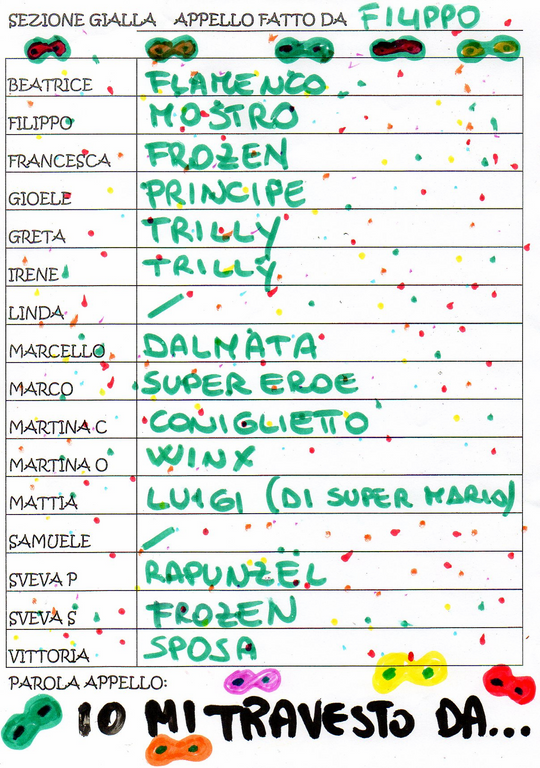 SEZIONE GIALLA APPELLO FATTO DA FILIPPO
BEATRICE FLAMENCO
FILIPPO MOSTRO
FRANCESCA FROZEN
GIOELE PRINCIPE
GRETA TRILLY
IRENE TRILLY
LINDA /
MARCELLO DALMATA
MARCO SUPER EROE
MARTINA C CONIGLIETTO
MARTINA O WINX
MATTIA LUIGI (DI SUPER MARIO)
SAMUELE /
SVEVA P RAPUNZEL
SVEVA S FROZEN
VITTORIA SPOSA
PAROLA APPELLO:
IO MI TRAVESTO DA...